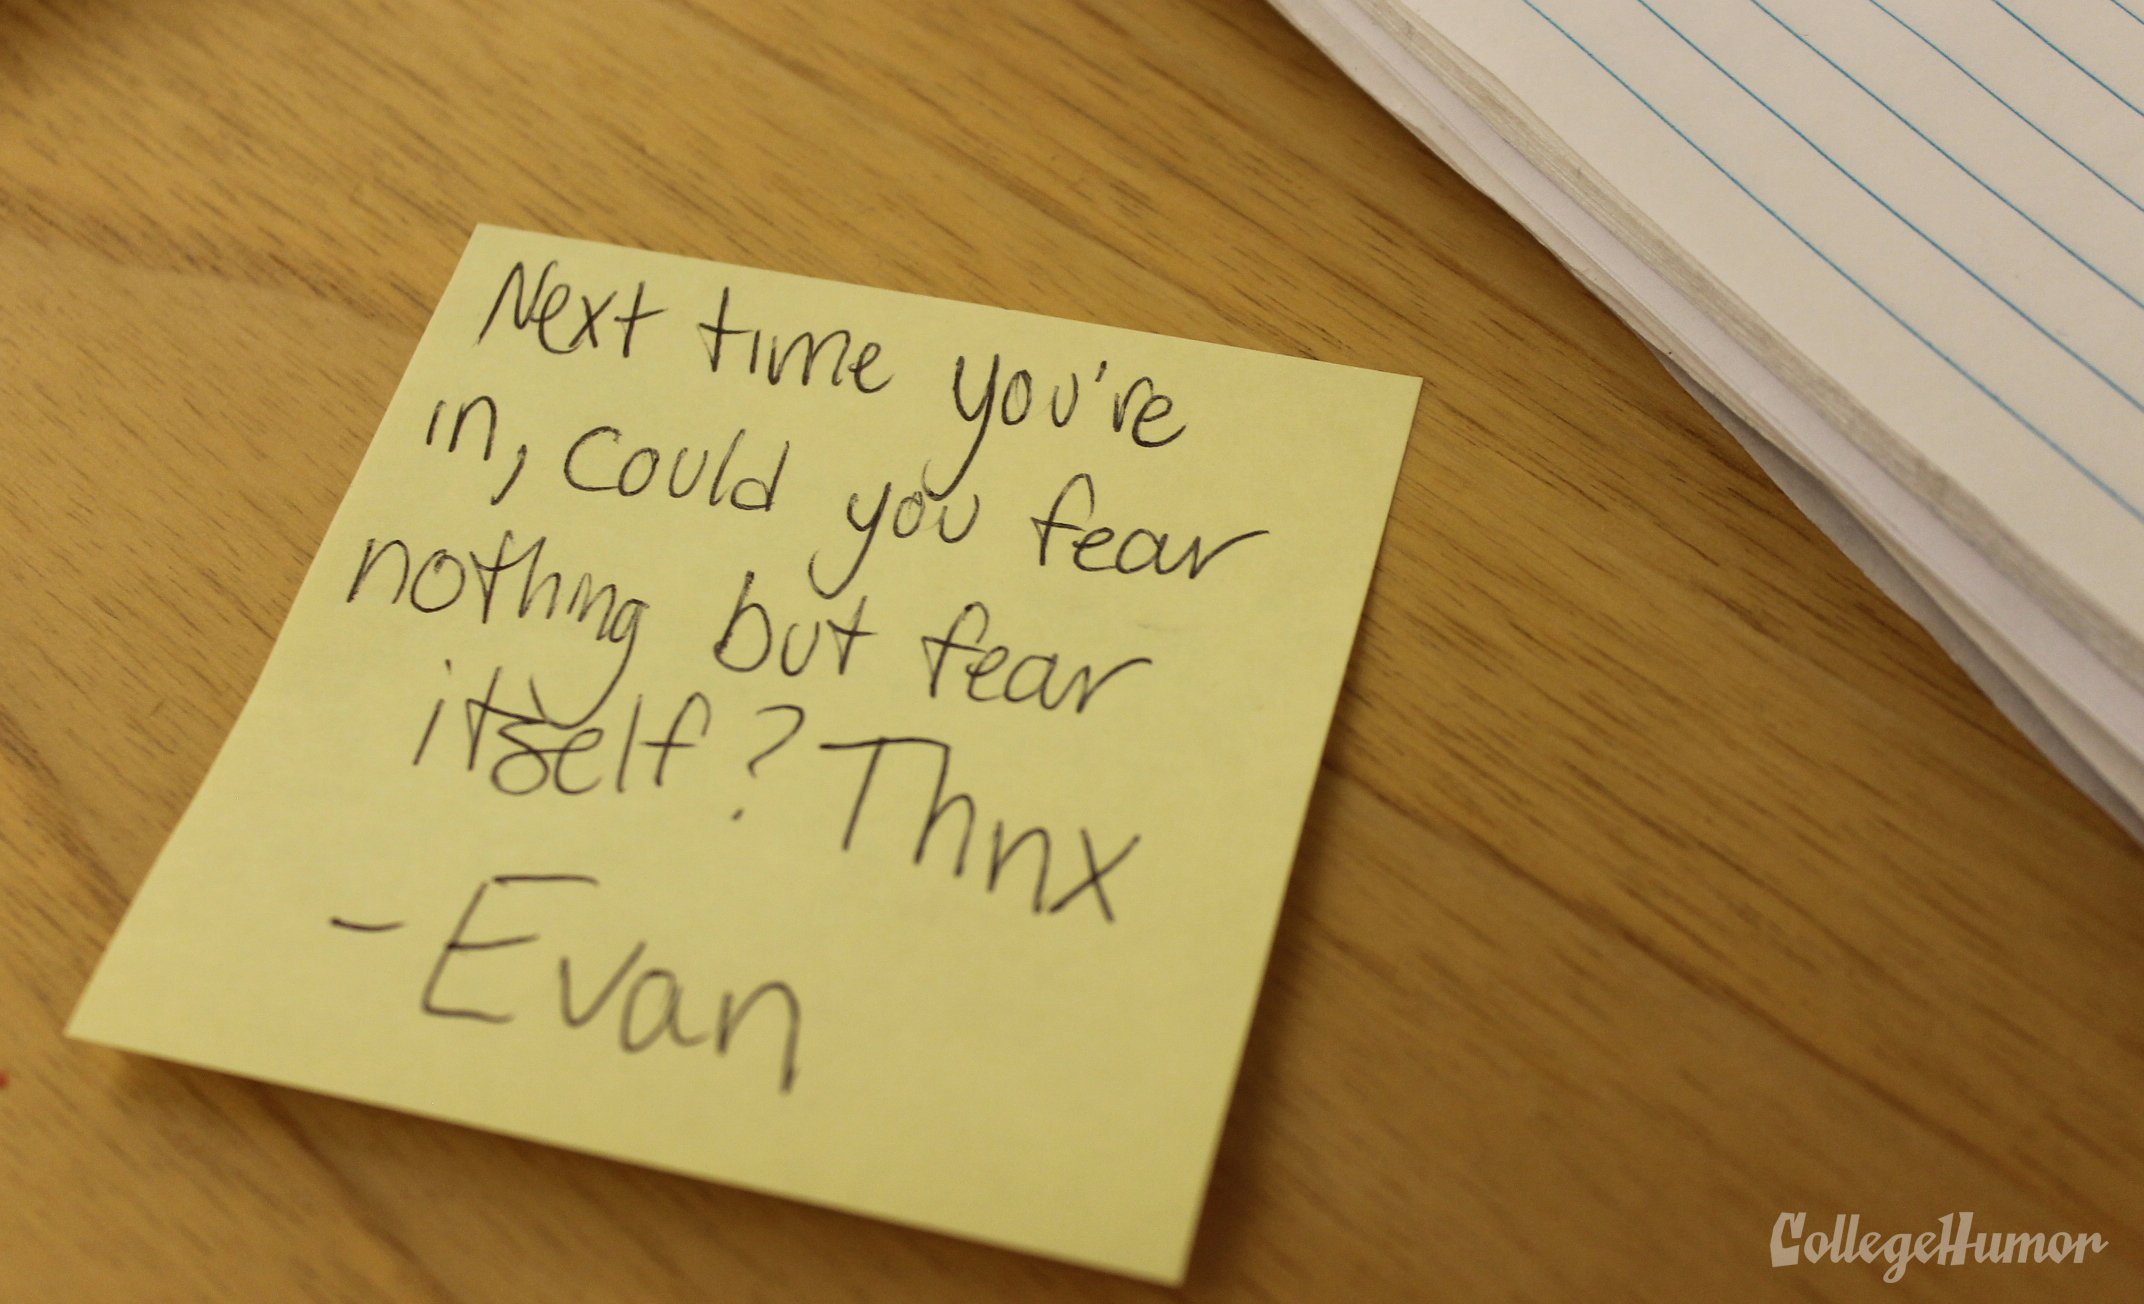 Next time you're
in, could you fear
nothing but fear
itself? Thnx
- Evan
CollegeHumor